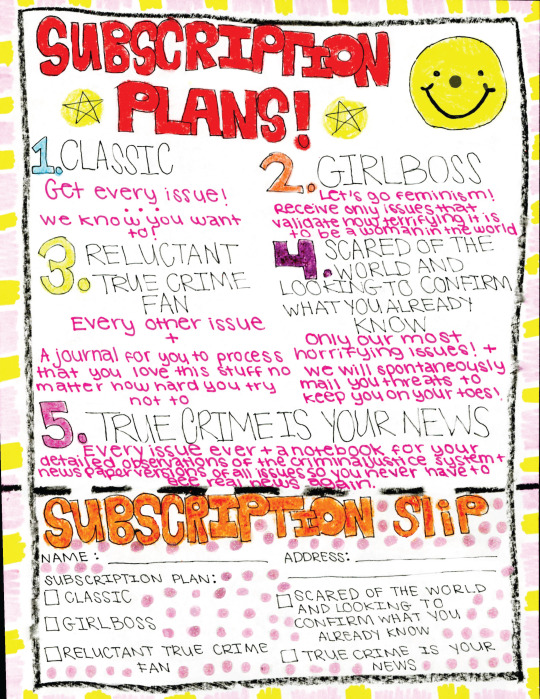 SUBSCRIPTION
PLANS!
1. CLASSIC
Get every issue!
...
we know you want
to?
2. GIRLBOSS
Let's go feminism!
Receive only issues that
validate how terrifying it is
to be a woman in the world
3. RELUCTANT
TRUE CRIME
FAN
Every other issue
+
A journal for you to process
that you love this stuff no
matter how hard you try
not to
4. SCARED OF THE
WORLD AND
LOOKING TO CONFIRM
WHAT YOU ALREADY
KNOW
only our most
horrifying issues! +
we will spontaneously
mail you threats to
keep you on your toes!
5. TRUE CRIME IS YOUR NEWS
Every issue ever + a notebook for your
detailed observations of the criminal justice system +
newspaper versions of all issues so you never have to
see real news again.
SUBSCRIPTION SLIP
NAME:
ADDRESS:
SUBSCRIPTION PLAN:
CLASSIC
GIRLBOSS
RELUCTANT TRUE CRIME
FAN
SCARED OF THE WORLD
AND LOOKING TO
CONFIRM WHAT YOU
ALREADY KNOW
TRUE CRIME IS YOUR
NEWS